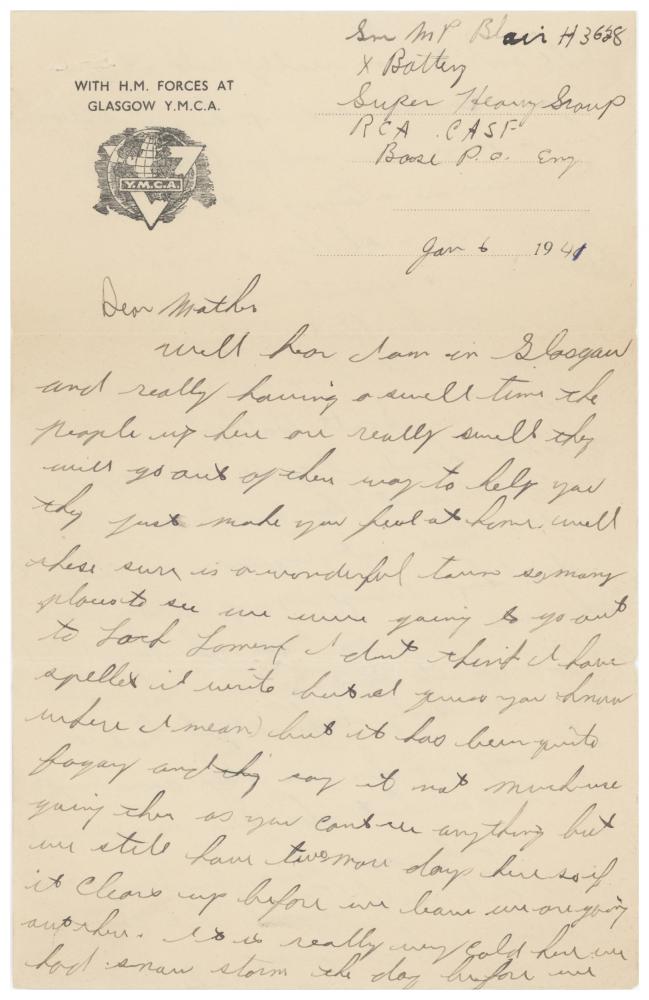 Gnr M P Blair H3658
X Battery
WITH H.M. FORCES AT
GLASGOW Y.M.C.A.
Super Heavy Group
RCA . CASF
Base P.O. Eng
Y.M.C.A.
Jan 6 1941
Dear Mother
well hear I am in Glasgow
and really having a swell time the
people up here are really swell they
will go out of their way to help you
they just make you feel at home. well
these sure is a wonderful town so many
places to see we were going to go out
to Loch Lomend I dont think I have
spelled it write but I guess you know
where I mean) but it has been quite
foggy and they say it not much use
going ther as you cant see anything but
we still have two more days here so if
it clears up before we leave we are going
out ther. It is really very cold here we
had snow storm the day before we